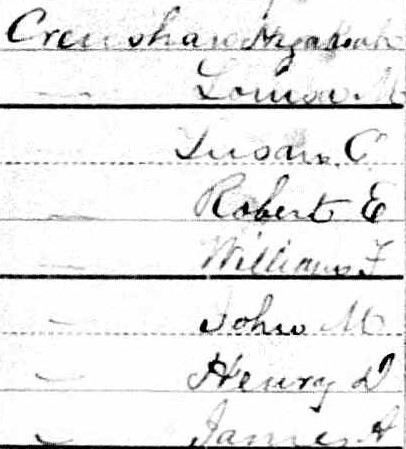 Crenshaw Hezekiah
— Louisa M
Susan C
— Robert E
— William F
— John M
— Henry D
— James A